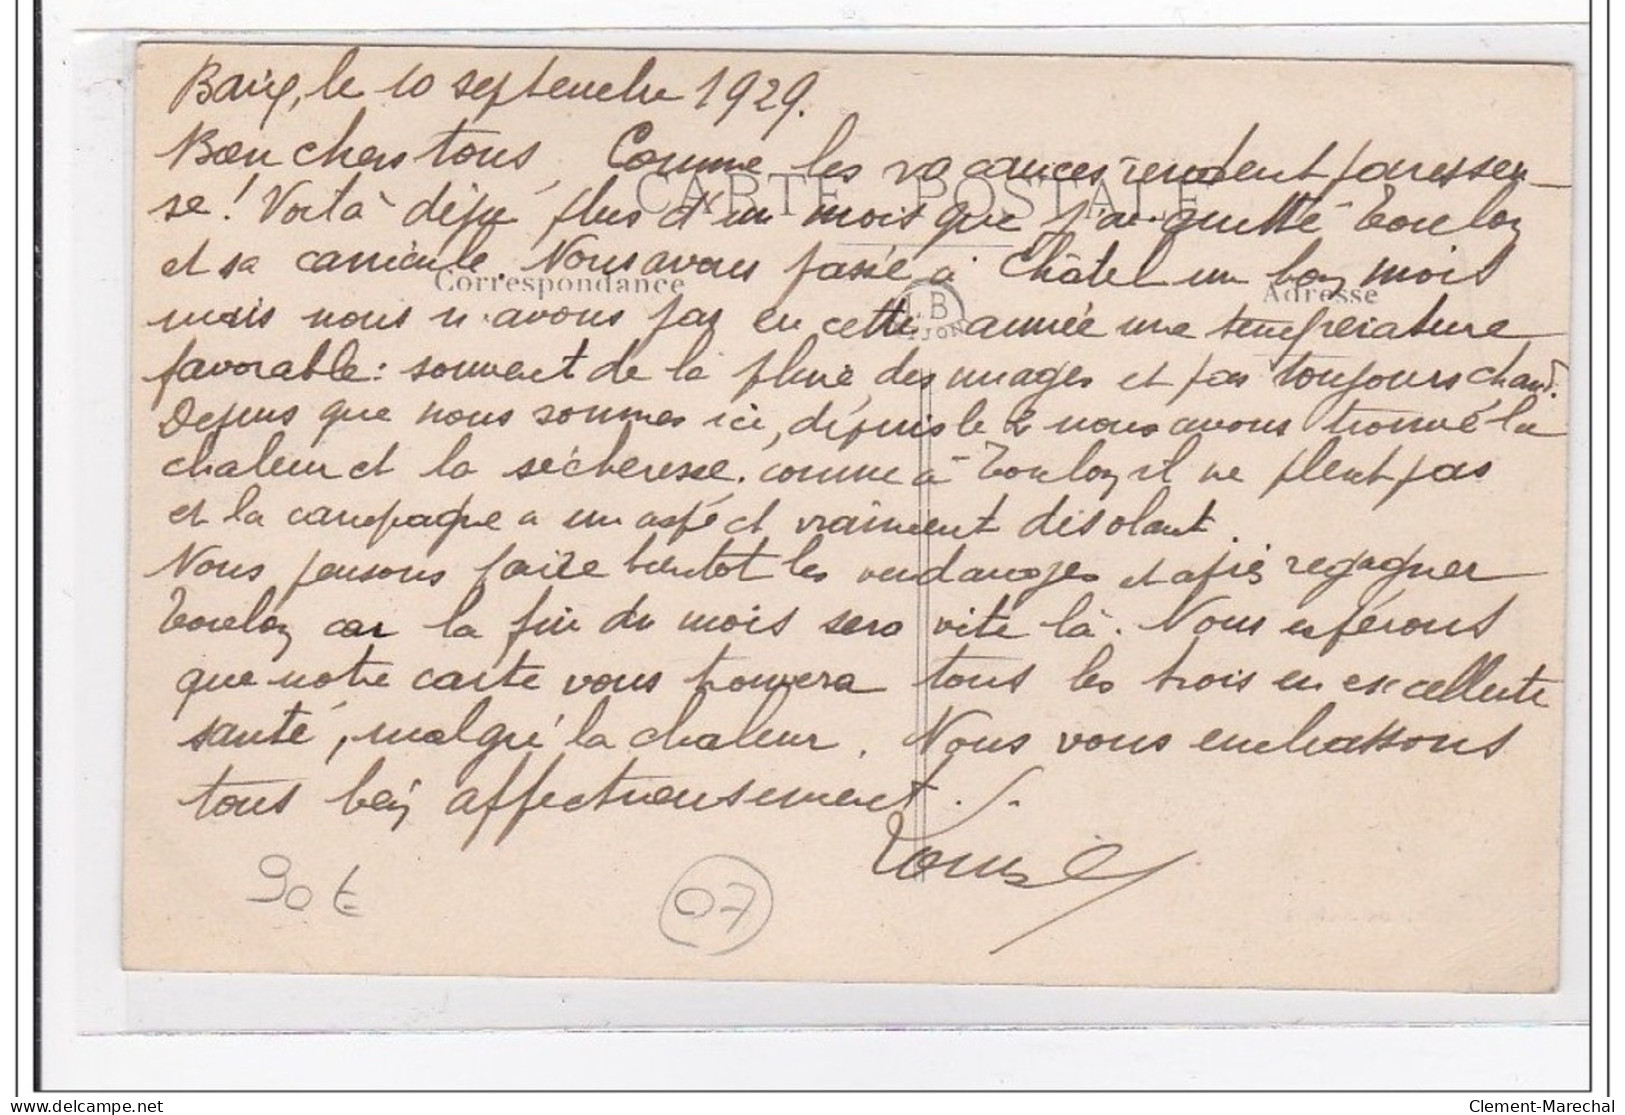 Baix, le 10 septembre 1929.
Bien chers tous, Comme les vacances rendent paresseu-
CARTE POSTALE
se! Voilà déjà plus d'un mois que j'ai quitté Toulon
et sa canicule. Nous avons passé à Châtel un bon mois
Correspondance
Adresse
L.B
DIJON
mais nous n'avons pas eu cette année une température
favorable: souvent de la pluie, des nuages et pas toujours chaud.
Depuis que nous sommes ici, depuis le 2 nous avons trouvé la
chaleur et la sécheresse. comme à Toulon il ne pleut pas
et la campagne a un aspect vraiment désolant.
Nous pensons faire bientôt les vendanges et après regagner
Toulon car la fin du mois sera vite là. Nous espérons
que notre carte vous trouvera tous les trois en excellente
santé, malgré la chaleur. Nous vous embrassons
tous bien affectueusement.
Louise
90 E
07
Clement-Marechal